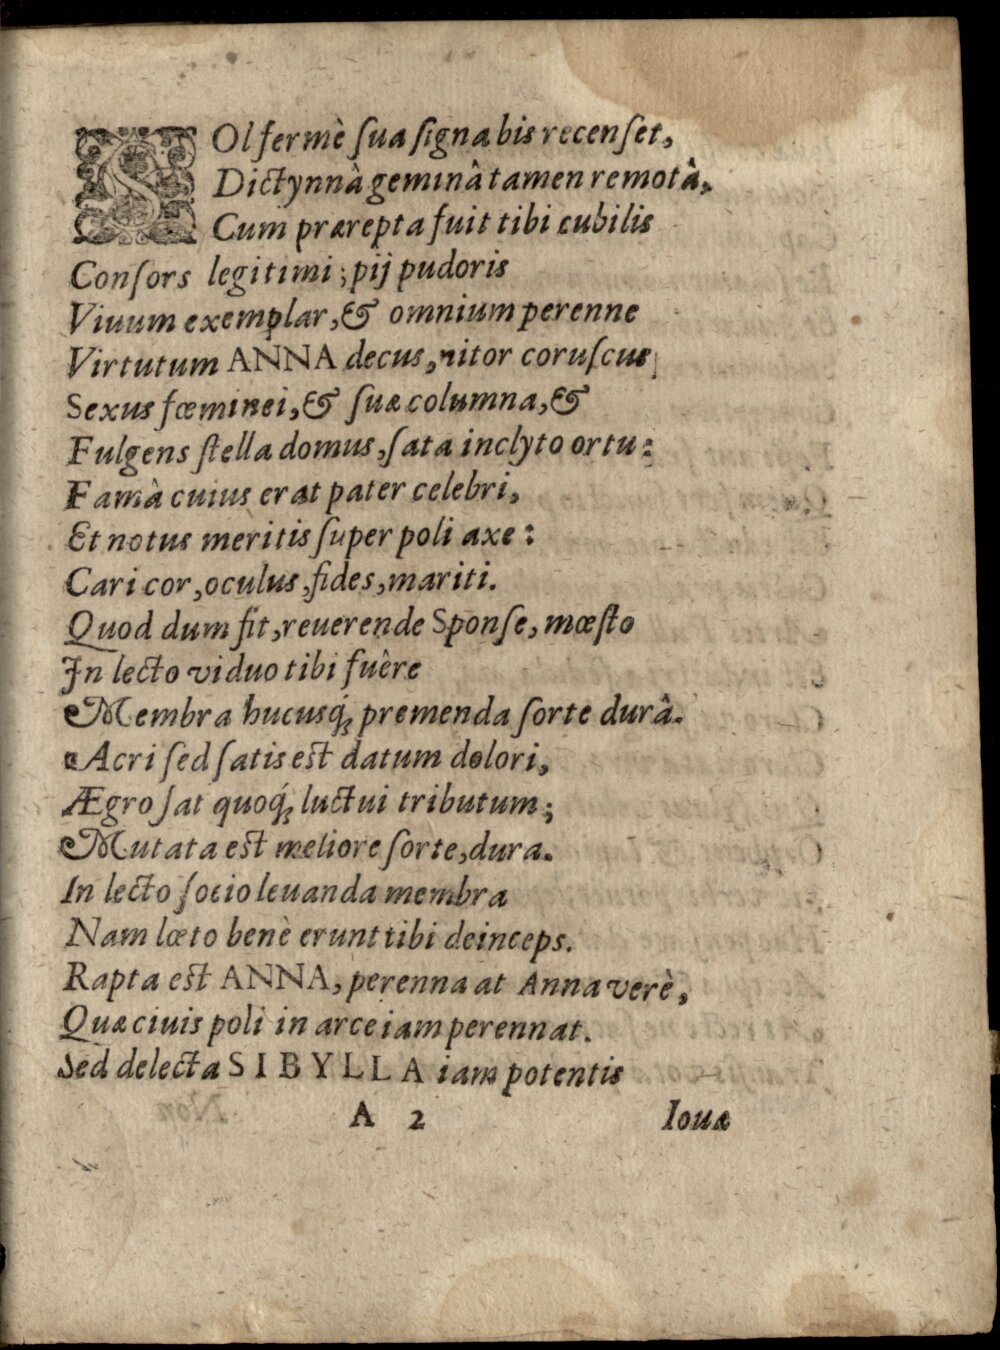 SOl fermè ſua ſigna bis recenſet,
Dictynnâ geminâ tamen remotâ,
Cum prærepta fuit tibi cubilis
Conſors legitimi; pij pudoris
Viuum exemplar, & omnium perenne
Virtutum ANNA decus, nitor coruſcus
Sexus fœminei, & ſuæ columna, &
Fulgens ſtella domus, ſata inclyto ortu:
Famâ cuius erat pater celebri,
Et notus meritis ſuper poli axe:
Cari cor, oculus, fides, mariti.
Quod dum fit, reuerende Sponſe, mœſto
In lecto viduo tibi fuêre
Membra hucusq́; premenda ſorte durâ.
Acri ſed ſatis eſt datum dolori,
Ægro ſat quoq́; luctui tributum;
Mutata eſt meliore ſorte, dura.
In lecto ſocio leuanda membra
Nam lœto benè erunt tibi deinceps.
Rapta eſt ANNA, perenna at Anna verè,
Quæ ciuis poli in arce iam perennat.
Sed delecta SIBYLLA iam potentis
A 2 Iouæ